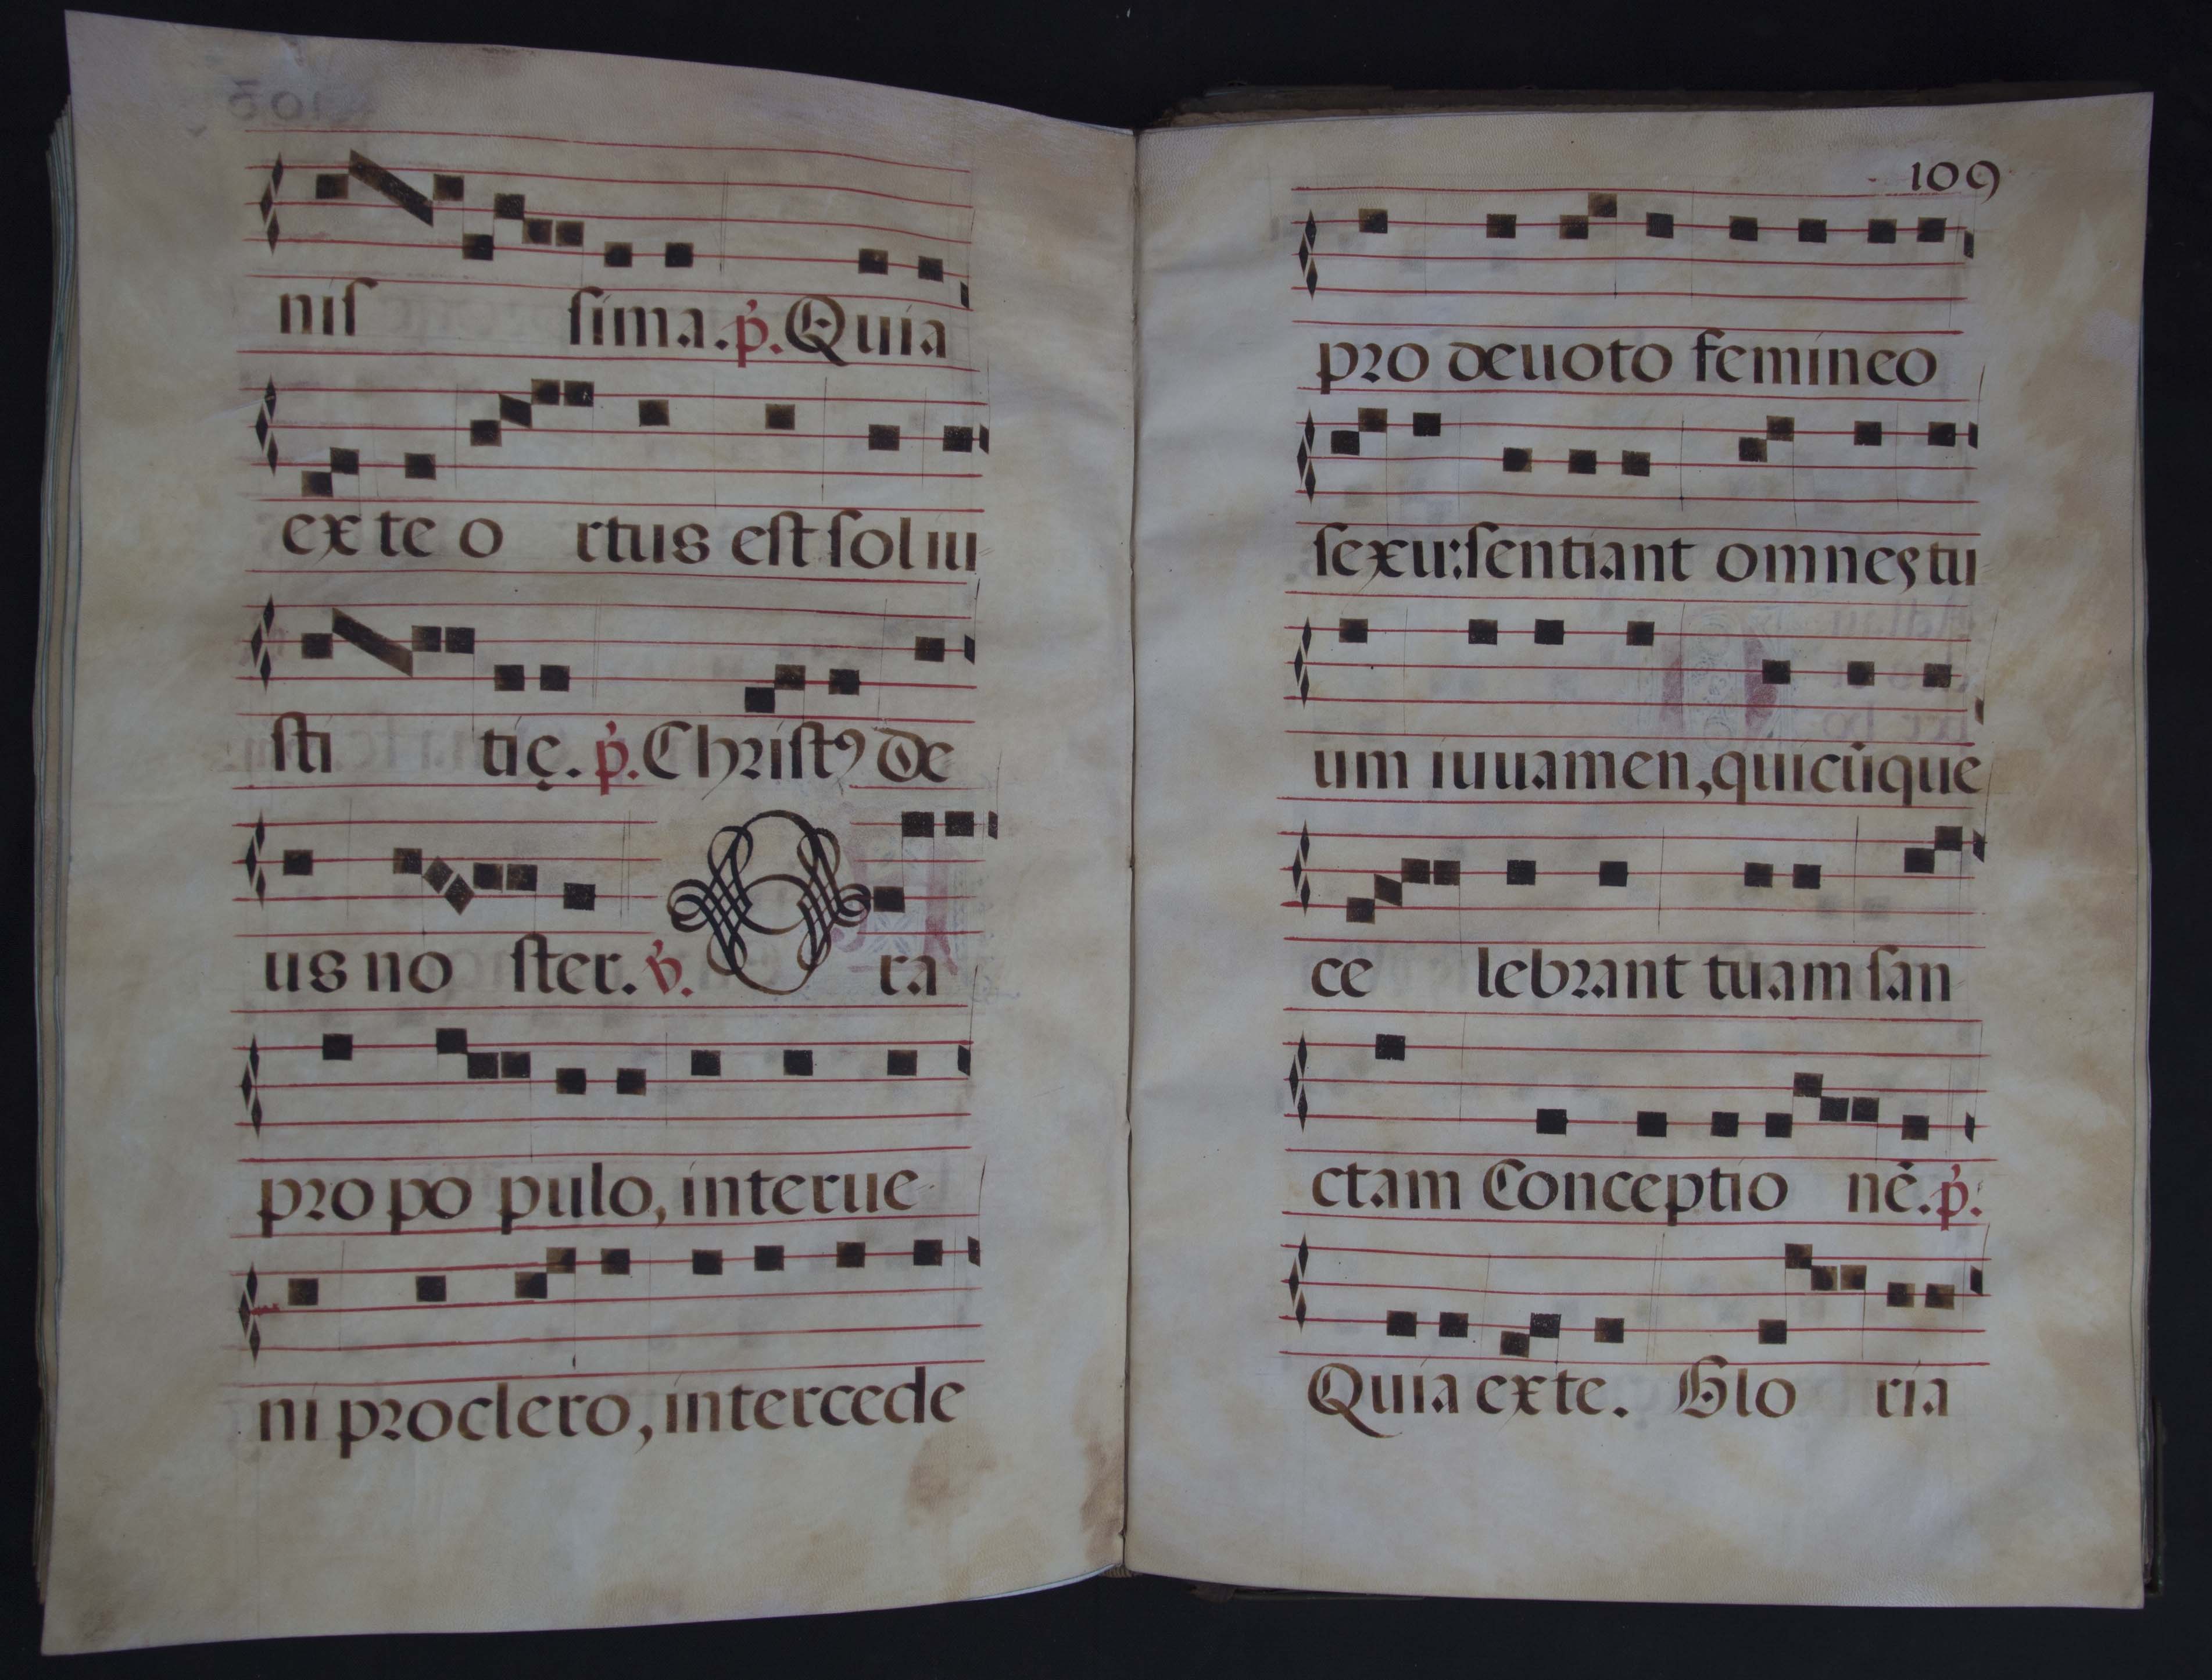 niſ ſima. p̃. Quia
ex te o rtus eſt ſol iu
ſti tię. p̃. Chriſtꝰ de
us no ſter. ṽ. O ra
pro po pulo, interue
ni pro clero, intercede
109
pro deuoto femineo
ſexu: ſentiant omnes tu
um iuuamen, quicũque
ce lebrant tuam ſan
ctam Conceptio nẽ. p̃.
Quia ex te. Glo ria